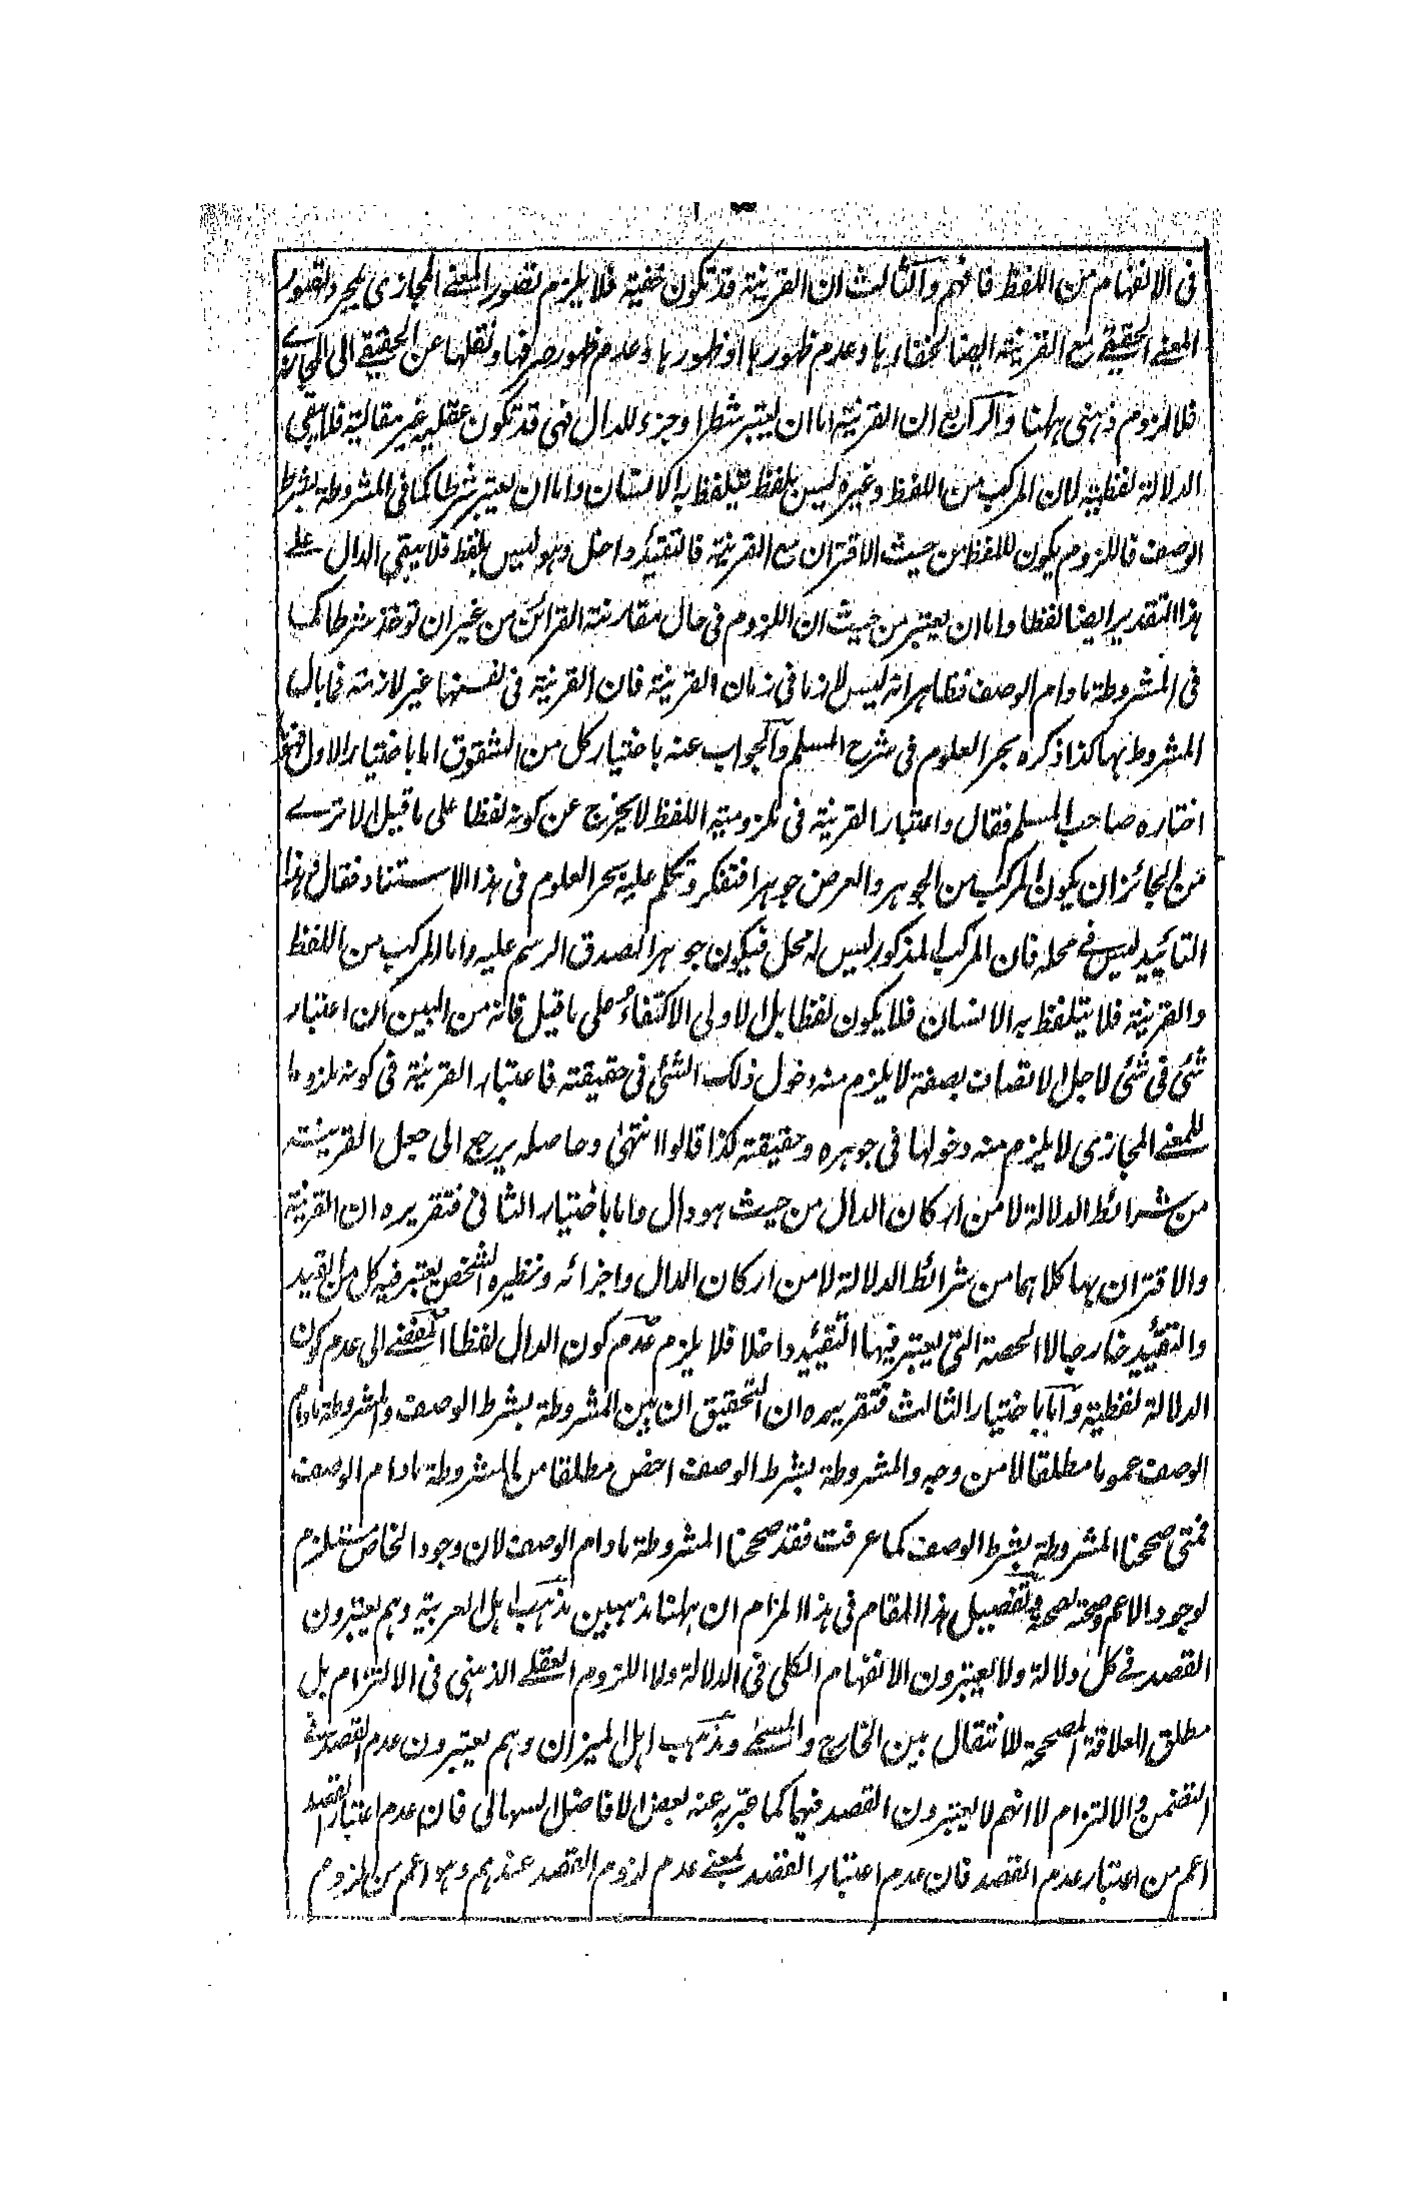 فى الانفهام من اللفظ فافهم والثالث ان القرينة قد تكون خفية فلا يلزم تصور المعنى المجازى بمجرد تصور
المعنى الحقيقى مع القرينة ايضا لخفاءها وعدم ظهورها او ظهورها وعدم ظهور صرفها ونقلها عن الحقيقى الى المجازى
فلا لزوم ذهنى ههنا والرابع ان القرينة اما ان يعتبر شطرا وجزء للدال فهى قد تكون عقلية غير مقالية فلا يبقى
الدلالة لفظية لان المركب من اللفظ وغيره ليس بلفظ يتلفظ به الانسان واما ان يعتبر شرطا كما فى المشروطة بشرط
الوصف فاللزوم يكون للفظ من حيث الاقتران مع القرينة فالتقييد داخل وهو ليس بلفظ فلا يبقى الدال على
هذا التقدير ايضا لفظا واما ان يعتبر من حيث ان اللزوم فى حال مقارنة القرائن من غير ان توخذ شرطا كما
فى المشروطة مادام الوصف فظاهر انه ليس لازما فى زمان القرينة فان القرينة فى نفسها غير لازمة فما بال
المشروط بها كذا ذكره بحر العلوم فى شرح المسلم والجواب عنه باختيار كل من الشقوق اما باختيار الاول فهو
اختاره صاحب المسلم فقال واعتبار القرينة فى ملزومية اللفظ لا يخرج عن كونه لفظا على ما قيل الا ترى
من الجائز ان يكون المركب من الجوهر والعرض جوهرا فتفكر وتكلم عليه بحر العلوم فى هذا الاستناد فقال فى هذا
التائيد ليس فى محله فان المركب المذكور ليس له محل فيكون جوهرا لصدق الرسم عليه واما المركب من اللفظ
والقرينة فلا يتلفظ به الانسان فلا يكون لفظا بل الاولى الاكتفاء على ما قيل فانه من البين ان اعتبار
شئ فى شئ لاجل الاتصاف بصفة لا يلزم منه دخول ذلك الشئ فى حقيقته فاعتبار القرينة فى كونه ملزوما
للمعنى المجازى لا يلزم منه دخولها فى جوهره وحقيقته كذا قالوا انتهى وحاصله يرجع الى جعل القرينة
من شرائط الدلالة لا من اركان الدال من حيث هو دال واما باختيار الثانى فتقريره ان القرينة
والاقتران بها كلاهما من شرائط الدلالة لا من اركان الدال واجزائه ونظيره الشخص يعتبر فيه كل من القيد
والتقئيد خارجا لا الحصة التى يعتبر فيها التقئيد داخلا فلا يلزم عدم كون الدال لفظا المفضى الى عدم كون
الدلالة لفظية واما باختيار الثالث فتقريره ان التحقيق ان بين المشروطة بشرط الوصف والمشروطة مادام
الوصف عموما مطلقا لا من وجه والمشروطة بشرط الوصف اخص مطلقا من المشروطة مادام الوصف
فمتى صححنا المشروطة بشرط الوصف كما عرفت فقد صححنا المشروطة مادام الوصف لان وجود الخاص مستلزم
لوجود الاعم وصحته لصحته وتفصيل هذا المقام فى هذا المرام ان ههنا مذهبين مذهب اهل العربية وهم يعتبرون
القصد فى كل دلالة ولا يعتبرون الانفهام الكلى فى الدلالة ولا اللزوم العقلى الذهنى فى الالتزام بل
مطلق العلاقة المصححة للانتقال بين الخارج والمسمى ومذهب اهل الميزان وهم يعتبرون عدم القصد فى
التضمن والالتزام لا انهم لا يعتبرون القصد فيهما كما عبر به عنه بعض الافاضل السهالى فان عدم اعتبار القصد
اعم من اعتبار عدم القصد فان عدم اعتبار القصد بمعنى عدم لزوم القصد عندهم وهو اعم من لزوم